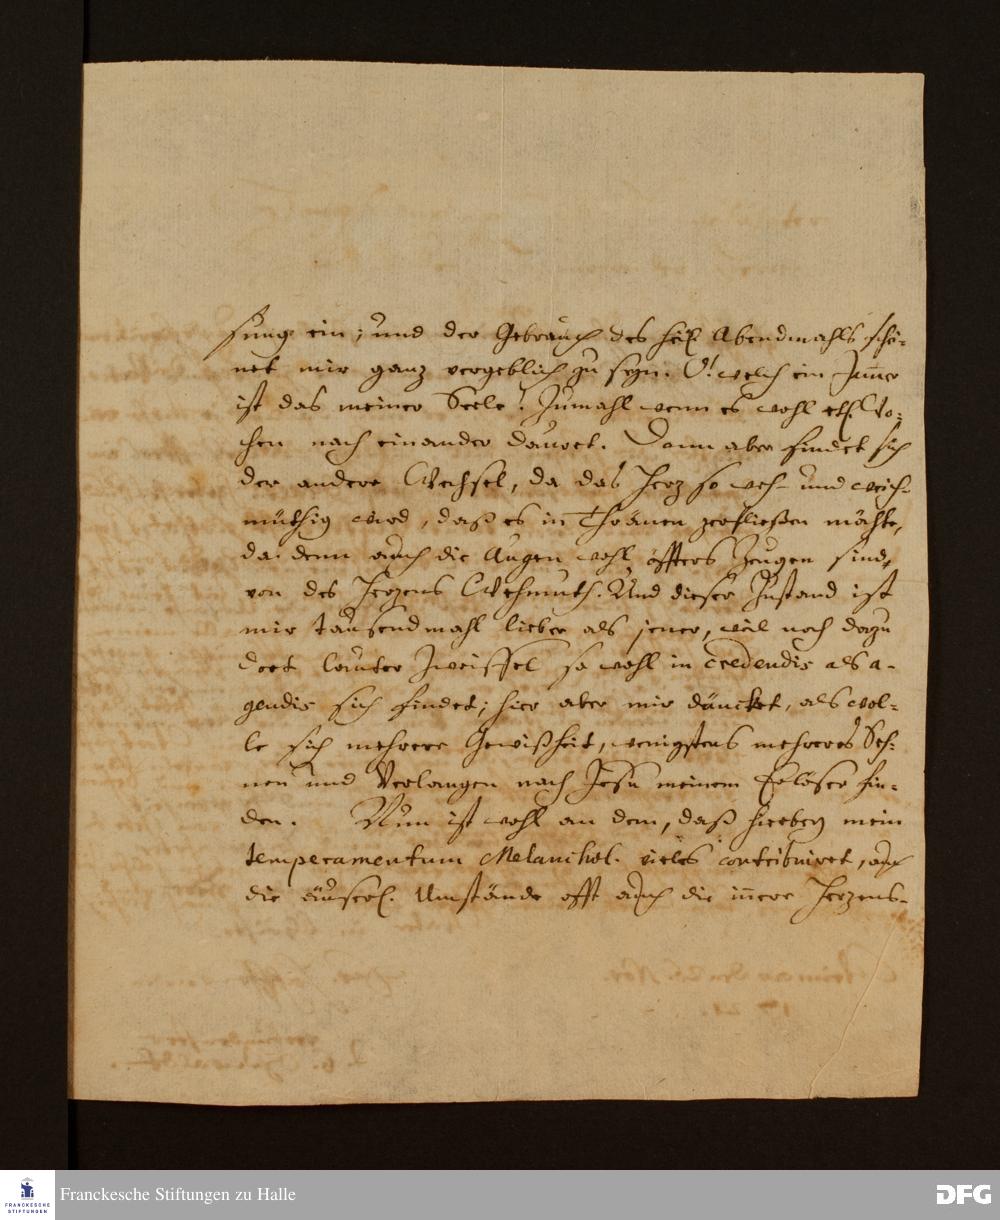 sung ein; und der Gebrauch des heil. Abendmahls schei-
net mir ganz vergeblich zu seyn. O! welch ein Jam̄er
ist das meiner Seele! Zumahl wenn es wohl etl. Wo-
chen nach einander dauret. Dann aber findet sich
der andere Wechsel, da das Herz so weh- und weich-
müthig wird, daß es in Thränen zerfließen möchte,
da denn auch die Augen wohl öffters Zeugen sind,
von des Herzens Wehmuth. Und dieser Zustand ist
mir tausendmahl lieber als jener, weil noch dazu
dort lauter Zweiffel so wohl in credendis als a-
gendis sich findet; hier aber mir däucket, als wol-
le sich mehrere Gewißheit, wenigstens mehreres Seh-
nen und Verlangen nach Jesu meinem Erlöser fin-
den. Nun ist wohl an dem, daß hierbey mein
temperamentum Melanchol. vieles contribuiret, auch
die äuserl. Umstände offt auch die in̄ere Herzens-
Franckesche Stiftungen zu Halle
FRANCKESCHE
STIFTUNGEN
DFG